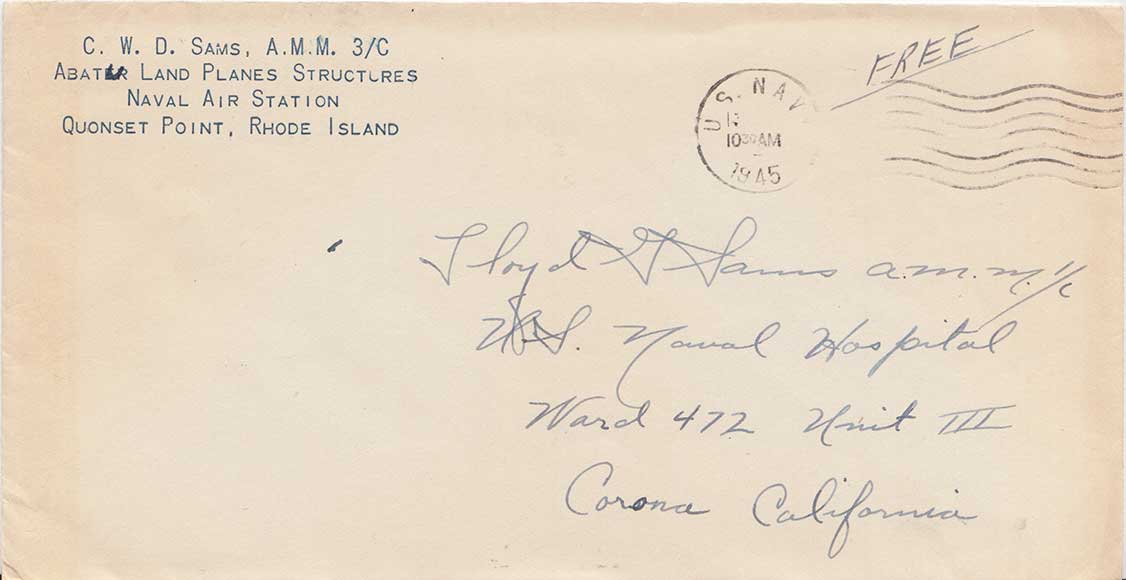 C. W. D. SAMS, A.M.M. 3/C
ABATU LAND PLANES STRUCTURES
NAVAL AIR STATION
QUONSET POINT, RHODE ISLAND
FREE
U.S. NAVY
10 30 AM
1945
Lloyd G Sams a.m.m. 1/c
U.S. Naval Hospital
Ward 472 Unit III
Corona California